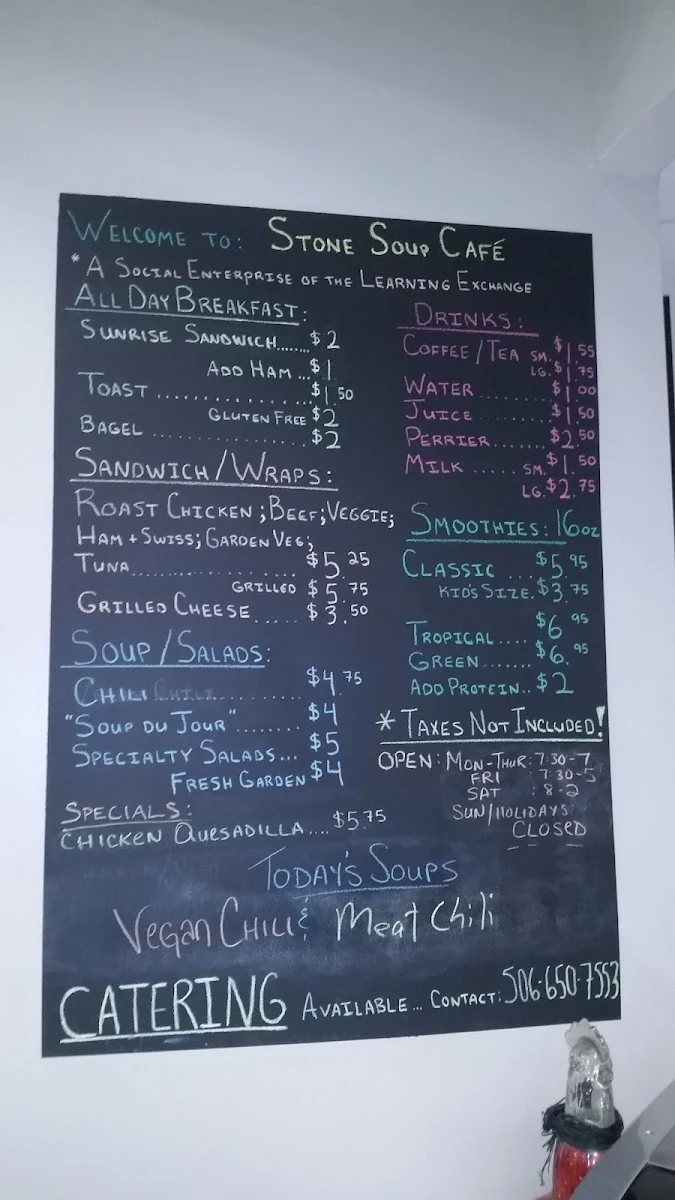 WELCOME TO: STONE SOUP CAFÉ
*A SOCIAL ENTERPRISE OF THE LEARNING EXCHANGE
ALL DAY BREAKFAST:
SUNRISE SANDWICH....... $2
ADD HAM ... $1
TOAST ............. $1.50
GLUTEN FREE $2
BAGEL ............. $2
SANDWICH/WRAPS:
ROAST CHICKEN; BEEF; VEGGIE;
HAM + SWISS; GARDEN VEG;
TUNA................ $5.25
GRILLED $5.75
GRILLED CHEESE ..... $3.50
SOUP/SALADS:
CHILI ............ $4.75
"SOUP DU JOUR"........ $4
SPECIALTY SALADS... $5
FRESH GARDEN $4
SPECIALS:
CHICKEN QUESADILLA.... $5.75
DRINKS:
COFFEE/TEA SM. $1.55
LG. $1.75
WATER ......... $1.00
JUICE ......... $1.50
PERRIER....... $2.50
MILK ...... SM. $1.50
LG. $2.75
SMOOTHIES: 16oz
CLASSIC .... $5.95
KID'S SIZE. $3.75
TROPICAL.... $6.95
GREEN....... $6.95
ADD PROTEIN.. $2
*TAXES NOT INCLUDED!
OPEN: MON-THUR: 7:30-7
FRI : 7:30-5
SAT : 8-2
SUN/HOLIDAYS
CLOSED
TODAY'S SOUPS
VEGAN CHILI & Meat Chili
CATERING AVAILABLE... CONTACT: 506-650-7553